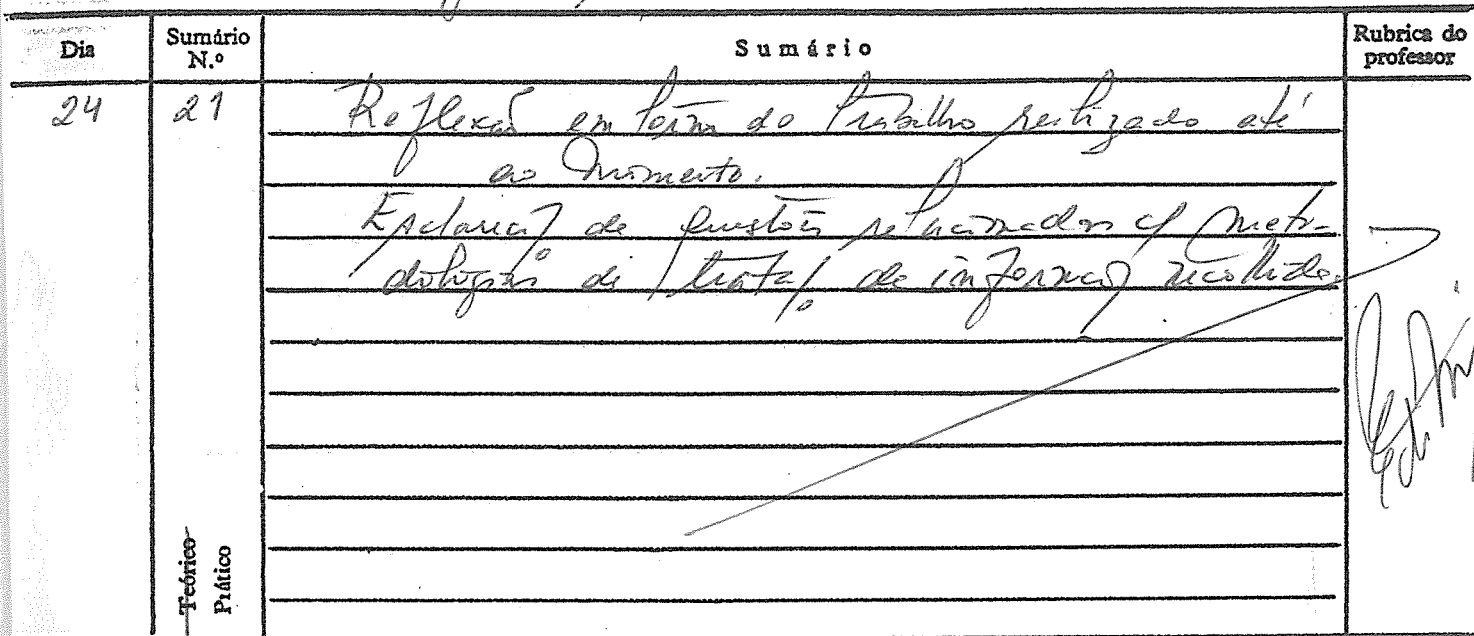 Dia Sumário N.º Sumário Rubrica do professor
24 21 Reflexão em torno do trabalho realizado até
ao momento.
Esclareci/ de questões relacionadas c/ meto-
dologias de trata/ de informaç/ recolhida
Teórico
Prático